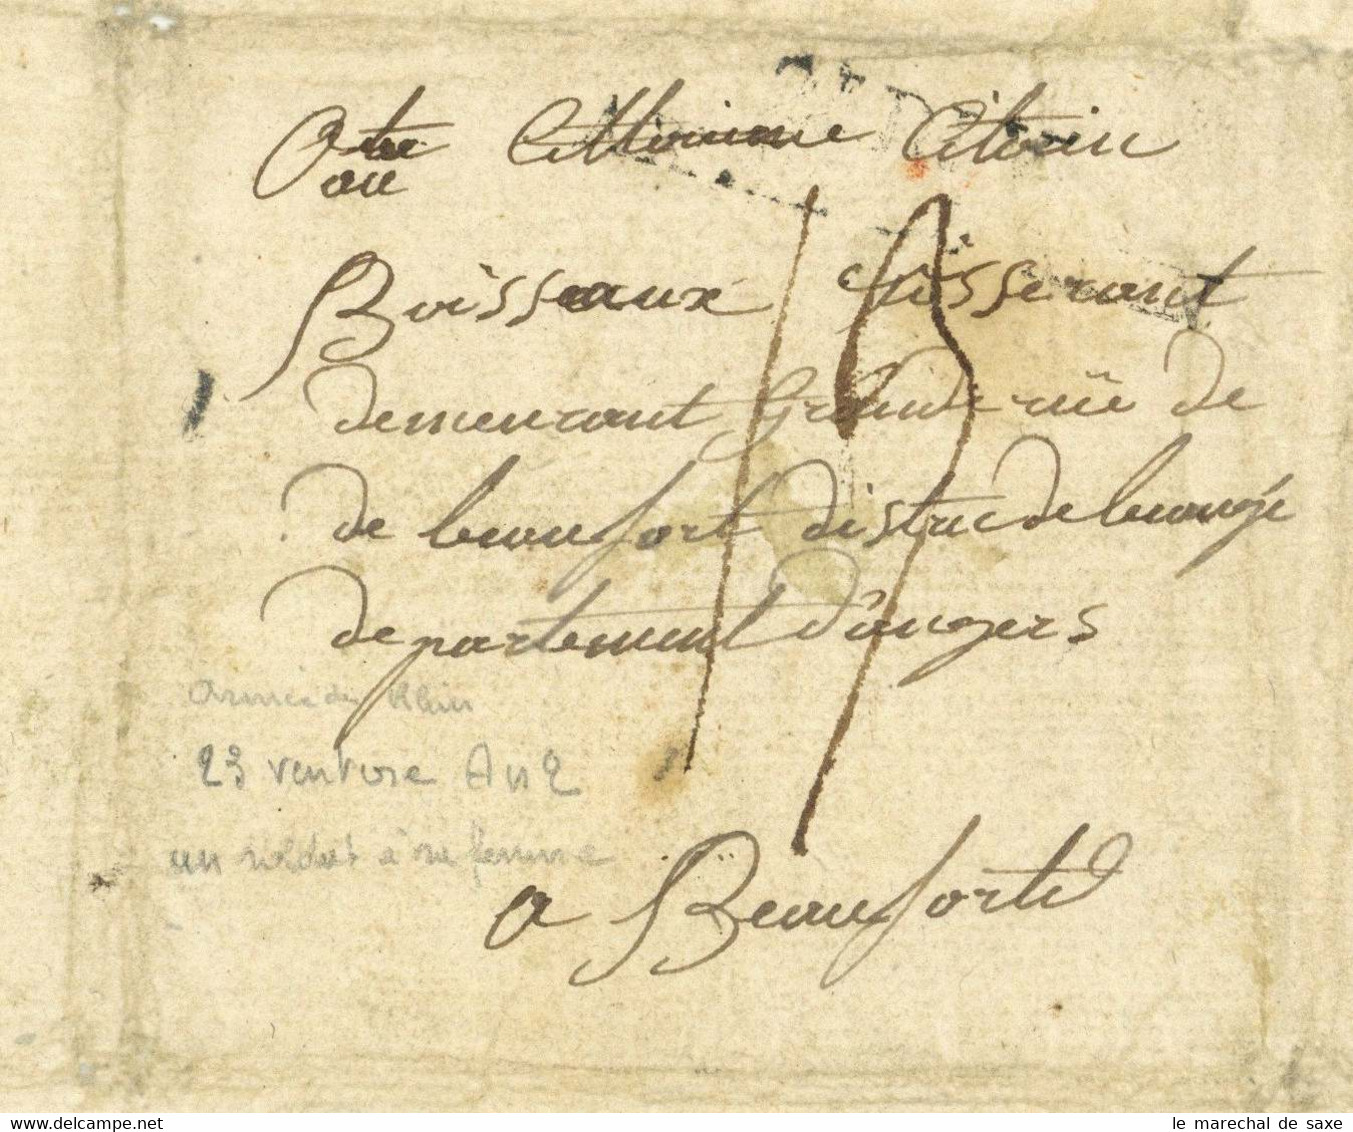 au Citoien
Boisseaux tisserant
demeurant Grande rüe de
de beaufort distric de beaugé
departement d'angers
13
armée du Rhin
23 ventose An 2
un soldat à sa femme
a Beaufort
le marechal de saxe